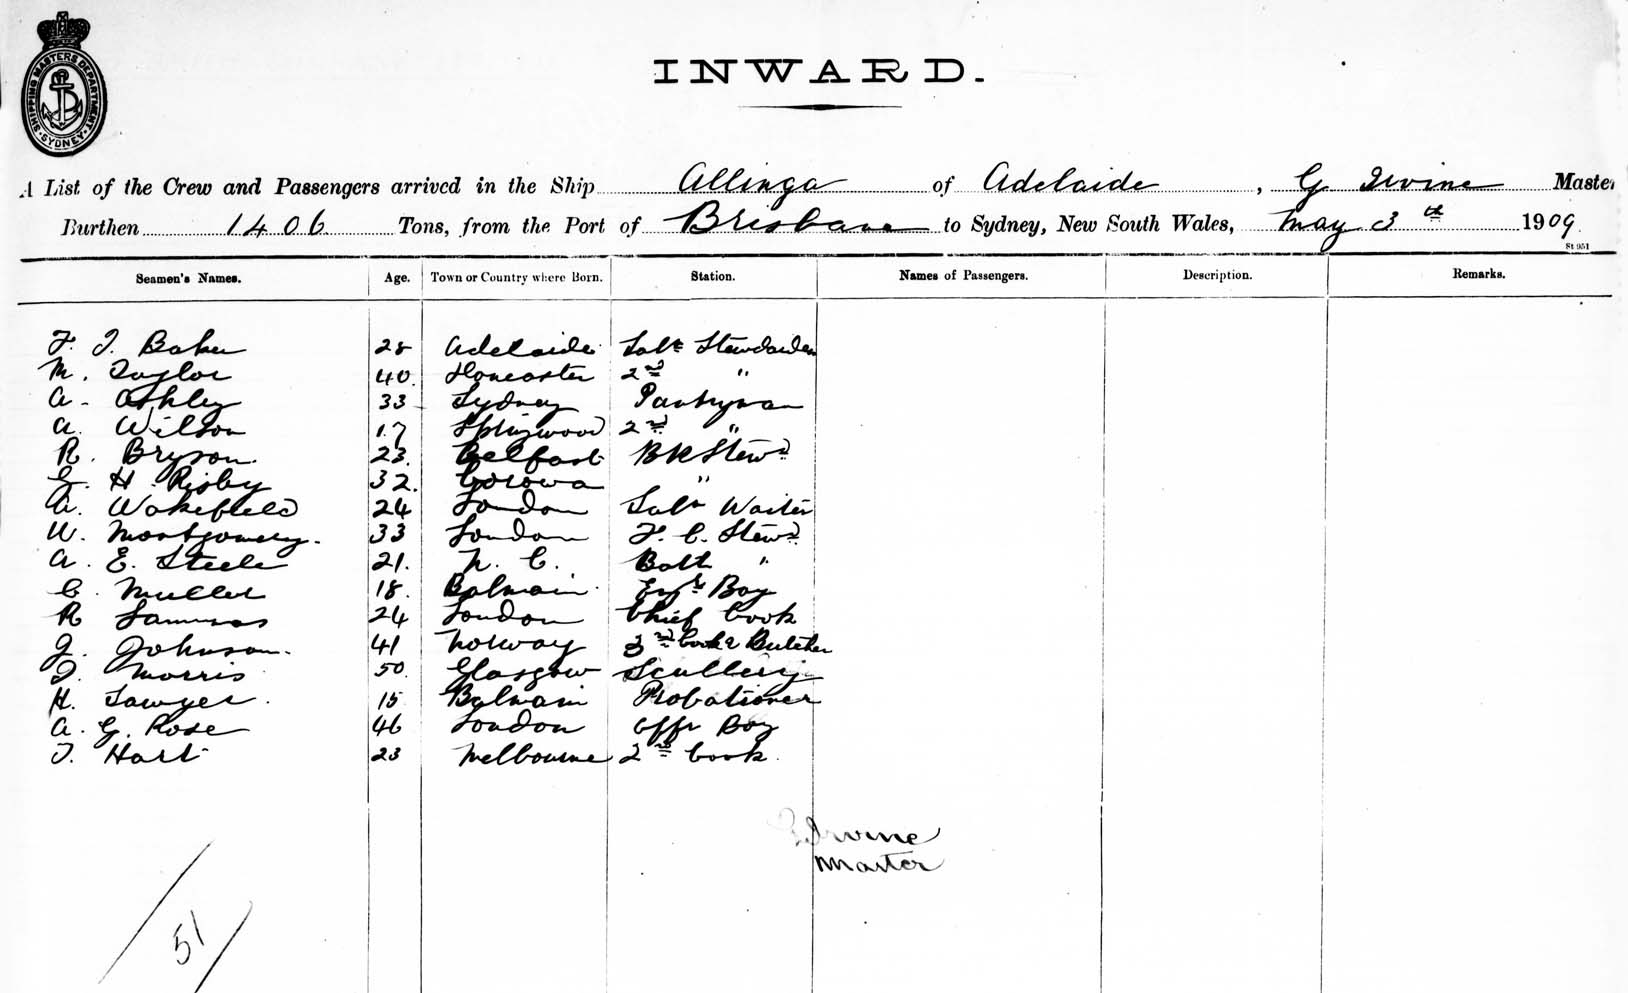 SHIPPING MASTERS DEPARTMENT
SYDNEY
INWARD.
A List of the Crew and Passengers arrived in the Ship Allinga of Adelaide, G Irvine Master
Burthen 1406 Tons, from the Port of Brisbane to Sydney, New South Wales, May 3th 1909.
St 951
Seamen's Names. Age. Town or Country where Born. Station. Names of Passengers. Description. Remarks.
F. J. Baker 28 Adelaide Saln
M. Taylor 40. 2nd "
A. Ashley 33 Sydney Pantryman
A. Wilson 17 Springwood 2nd "
R. Bryson. 23. Belfast BR Stewd
H. Rigby 32. Corowa "
A. Wakefield 24 London Saln Waiter
W. Montgomery. 33 London F. C. Stewd
A. E. Steele 21. N. C. "
C. Muller 18. Balmain Engrs Boy
R 24 London Chief Cook
J. Johnson. 41 Norway 3rd Cook & Butcher
J. Morris 50. Glasgow Scullery
H. Sawyer. 15 Balmain Probationer
A. G. Rose 46 London Offr Boy
T. Hart 23 Melbourne 2nd Cook.
G Irvine
Master
51